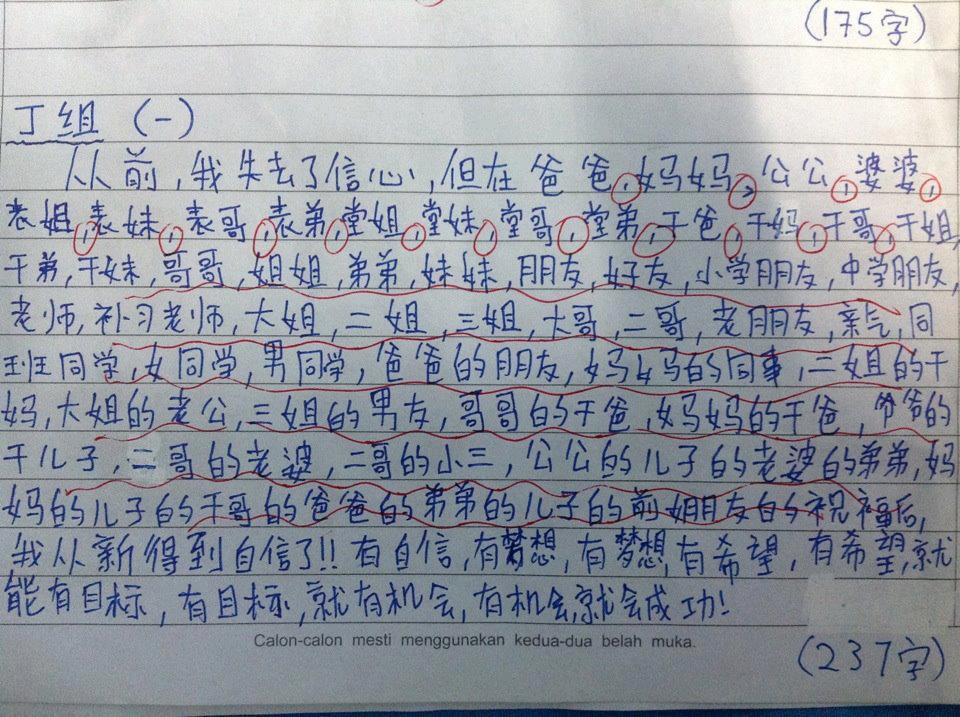 (175字)
丁组 (一)
从前，我失去了信心，但在爸爸，妈妈，公公，婆婆，
表姐，表妹，表哥，表弟，堂姐，堂妹，堂哥，堂弟，干爸，干妈，干哥，干姐，
干弟，干妹，哥哥，姐姐，弟弟，妹妹，朋友，好友，小学朋友，中学朋友，
老师，补习老师，大姐，二姐，三姐，大哥，二哥，老朋友，亲气，同
班同学，女同学，男同学，爸爸的朋友，妈妈的同事，二姐的干
妈，大姐的老公，三姐的男友，哥哥的干爸，妈妈的干爸，爷爷的
干儿子，二哥的老婆，二哥的小三，公公的儿子的老婆的弟弟，妈
妈的儿子的干哥的爸爸的弟弟的儿子的前姻朋友的祝福后，
我从新得到自信了!! 有自信，有梦想，有梦想，有希望，有希望，就
能有目标，有目标，就有机会，有机会，就会成功!
Calon-calon mesti menggunakan kedua-dua belah muka.
(237字)